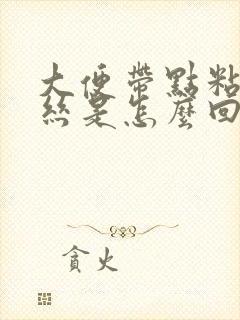 大便帶點粘
絲是怎麼回
貪火